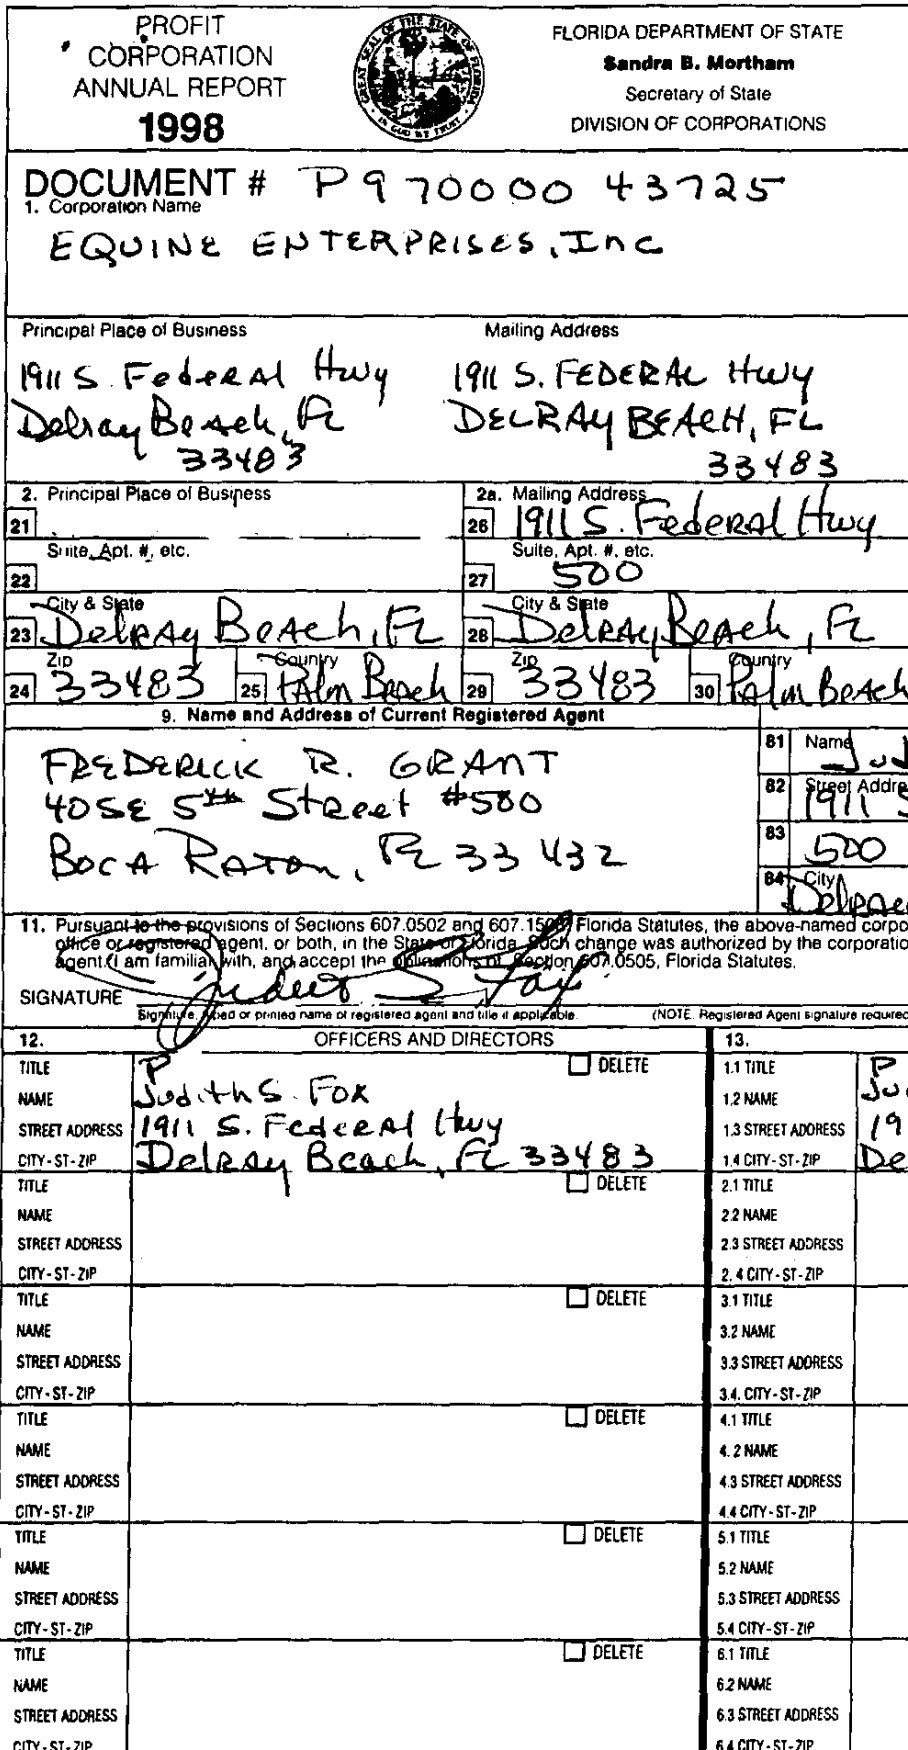 PROFIT
CORPORATION
ANNUAL REPORT
1998
GREAT SEAL OF THE STATE OF FLORIDA
IN GOD WE TRUST
FLORIDA DEPARTMENT OF STATE
Sandra B. Mortham
Secretary of State
DIVISION OF CORPORATIONS
DOCUMENT # P97000043725
1. Corporation Name
EQUINE ENTERPRISES, Inc
Principal Place of Business
1911 S. Federal Hwy
Delray Beach, FL
33483
Mailing Address
1911 S. FEDERAL Hwy
DELRAY BEACH, FL
33483
2. Principal Place of Business
21
Suite, Apt. #, etc.
22
City & State
23 Delray Beach, FL
Zip
24 33483
Country
25 Palm Beach
2a. Mailing Address
26 1911 S. Federal Hwy
Suite, Apt. #, etc.
27 500
City & State
28 Delray Beach, FL
Zip
29 33483
Country
30 Palm Beach
9. Name and Address of Current Registered Agent
FREDERICK R. GRANT
40 SE 5th Street #500
BOCA RATON, FL 33432
81 Name
Jud
82 Street Addre
1911 S
83 500
84 City
Delray
11. Pursuant to the provisions of Sections 607.0502 and 607.1508, Florida Statutes, the above-named corpo
office or registered agent, or both, in the State of Florida. Such change was authorized by the corporatio
agent. I am familiar with, and accept the obligations of, Section 607.0505, Florida Statutes.
SIGNATURE Judith S Fox
Signature, typed or printed name of registered agent and title if applicable. (NOTE. Registered Agent signature required
12. OFFICERS AND DIRECTORS 13.
TITLE P DELETE 1.1 TITLE P
NAME Judith S. Fox 1.2 NAME Ju
STREET ADDRESS 1911 S. Federal Hwy 1.3 STREET ADDRESS 19
CITY-ST-ZIP Delray Beach, FL 33483 1.4 CITY-ST-ZIP De
TITLE DELETE 2.1 TITLE
NAME 2.2 NAME
STREET ADDRESS 2.3 STREET ADDRESS
CITY-ST-ZIP 2.4 CITY-ST-ZIP
TITLE DELETE 3.1 TITLE
NAME 3.2 NAME
STREET ADDRESS 3.3 STREET ADDRESS
CITY-ST-ZIP 3.4. CITY-ST-ZIP
TITLE DELETE 4.1 TITLE
NAME 4.2 NAME
STREET ADDRESS 4.3 STREET ADDRESS
CITY-ST-ZIP 4.4 CITY-ST-ZIP
TITLE DELETE 5.1 TITLE
NAME 5.2 NAME
STREET ADDRESS 5.3 STREET ADDRESS
CITY-ST-ZIP 5.4 CITY-ST-ZIP
TITLE DELETE 6.1 TITLE
NAME 6.2 NAME
STREET ADDRESS 6.3 STREET ADDRESS
CITY-ST-ZIP 6.4 CITY-ST-ZIP